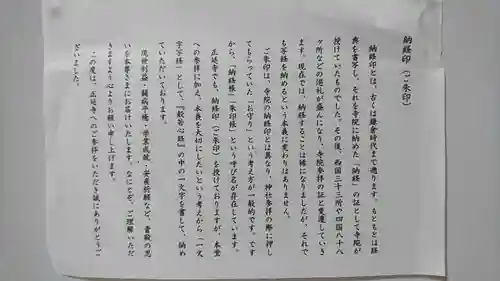 納経印（ご朱印）
納経印とは、古くは鎌倉時代まで遡ります。もともとは経
典を書写し、それを寺院に納めた「納経」の証として寺院が
授けていたものでした。その後、西国三十三所や四国八十八
ヶ所などの巡礼が盛んになり、寺院参拝の証と変遷していき
ます。現在では、納経することは稀になりましたが、それで
も写経を納めるという本義に変わりはありません。
ご朱印は、寺院の納経印とは異なり、神社参拝の際に押し
てもらっていた「お守り」という考え方が一般的です。です
から、「納経帳」「朱印帳」という呼び名が存在しています。
正延寺でも、納経印（ご朱印）を授けておりますが、本堂
への参拝に加え、本義を大切にしたいという考えから「一文
字写経」として、『般若心経』の中の一文字を書して、納め
ていただいております。
現世利益・闘病平癒・学業成就・安産祈願など、貴殿の思
いを本尊さまにお届けいたします。なにとぞ、ご理解いただ
きますよう心よりお願い申し上げます。
この度は、正延寺へのご参拝をいただき誠にありがとうご
ざいました。